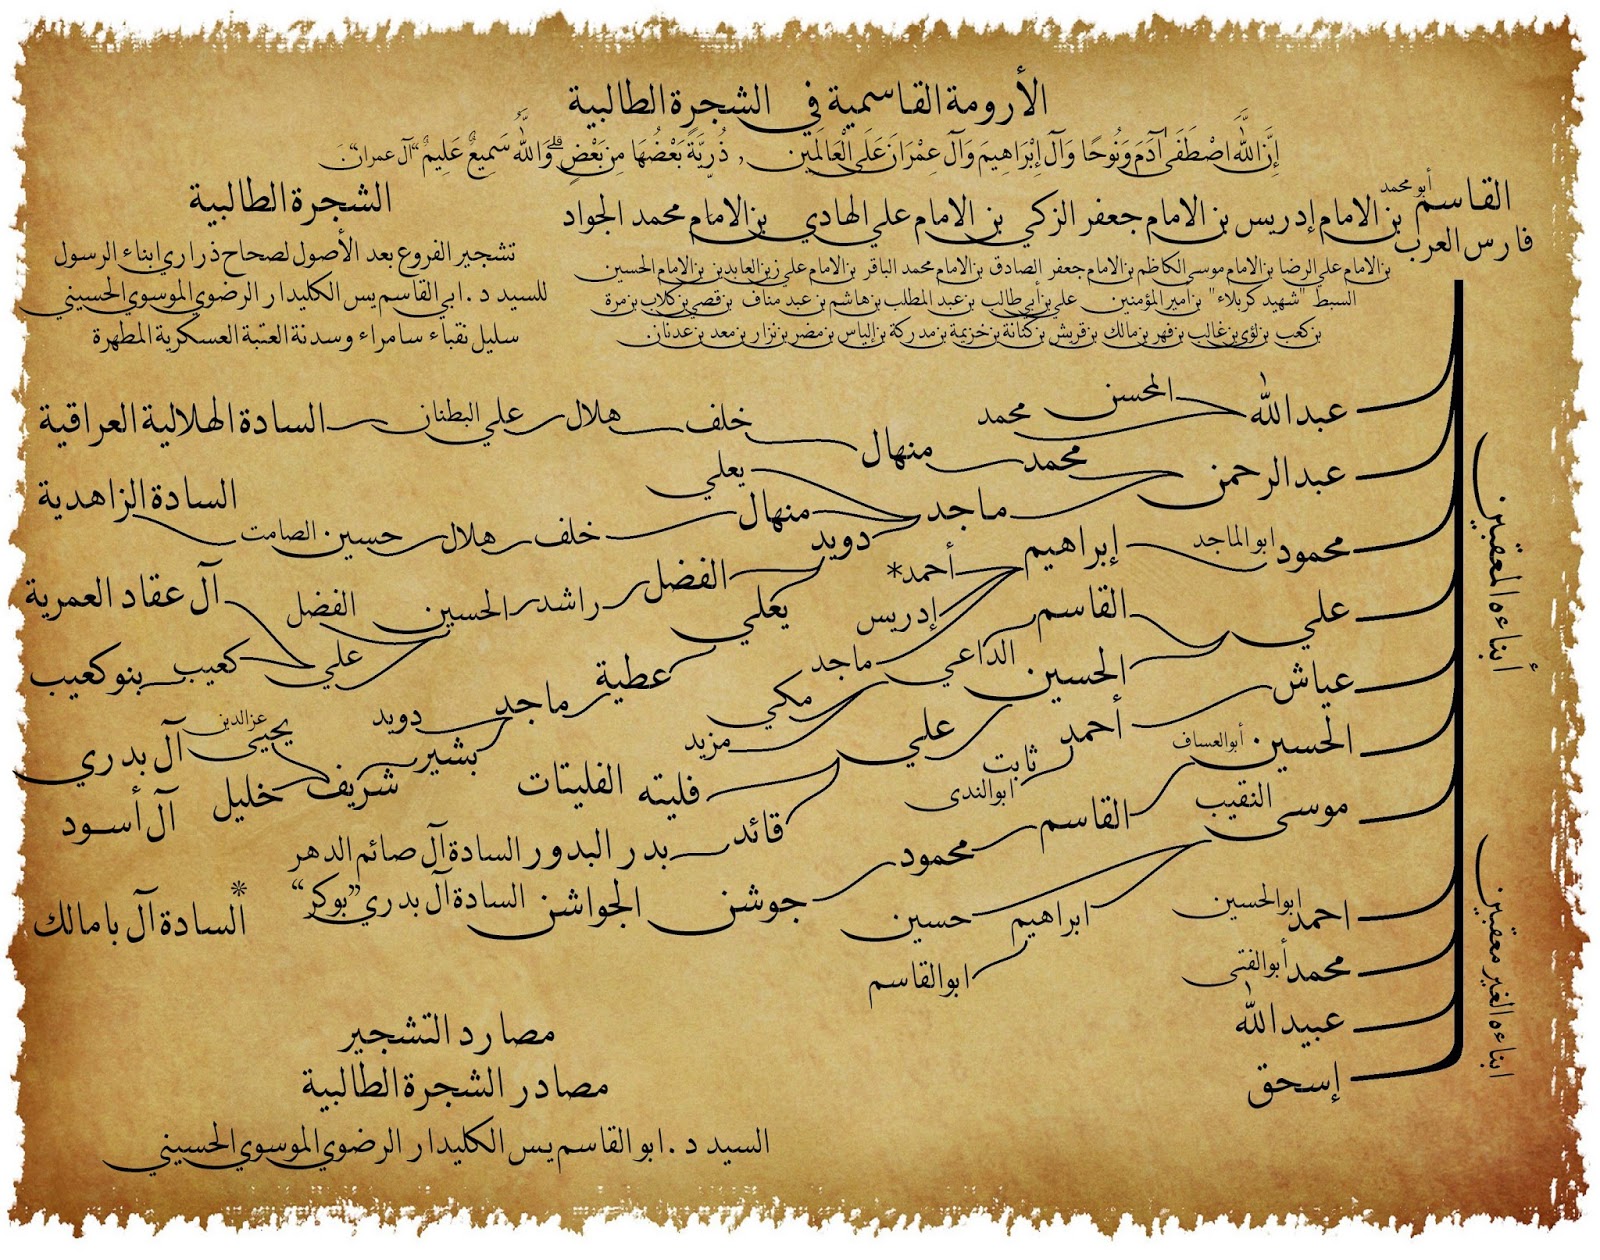 الأرومة القاسمية في الشجرة الطالبية
إِنَّ اللَّهَ اصْطَفَى آدَمَ وَنُوحًا وَآلَ إِبْرَاهِيمَ وَآلَ عِمْرَانَ عَلَى الْعَالَمِينَ , ذُرِّيَّةً بَعْضُهَا مِن بَعْضٍ ۗ وَاللَّهُ سَمِيعٌ عَلِيمٌ "آل عمران"
القاسم أبو محمد بن الامام إدريس بن الامام جعفر الزكي بن الامام علي الهادي بن الامام محمد الجواد
فارس العرب
بن الامام علي الرضا بن الامام موسى الكاظم بن الامام جعفر الصادق بن الامام محمد الباقر بن الامام علي زين العابدين بن الامام الحسين
السبط "شهيد كربلاء" بن أمير المؤمنين علي بن أبي طالب بن عبد المطلب بن هاشم بن عبد مناف بن قصي بن كلاب بن مرة
بن كعب بن لؤي بن غالب بن فهر بن مالك بن قريش بن كنانة بن خزيمة بن مدركة بن إلياس بن مضر بن نزار بن معد بن عدنان
الشجرة الطالبية
تشجير الفروع بعد الأصول لصحاح ذراري ابناء الرسول
للسيد د.ابي القاسم يس الكليدار الرضوي الموسوي الحسيني
سليل نقباء سامراء وسدنة العتبة العسكرية المطهرة
أبناءه المعقبين
عبدالله المحسن محمد
عبدالرحمن محمد منهال خلف هلال علي البطنان السادة الهلالية العراقية
ماجد يعلي
منهال خلف هلال حسين الصامت السادة الزاهدية
دويد الفضل راشد الحسين الفضل
علي آل عقاد العمرية
كعيب بنو كعيب
يعلي عطية ماجد دويد
بشير شريف يحيى عزالدين آل بدري
خليل آل أسود
محمود ابو الماجد إبراهيم أحمد*
إدريس
ماجد
علي القاسم الداعي مكي
مزيد
الحسين علي فليته الفليتات
قائد بدر البدور السادة آل صائم الدهر
عياش أحمد ثابت ابوالندى
الحسين أبوالعساف القاسم محمود جوشن الجواشن السادة آل بدري "بوكر"
موسى النقيب ابراهيم ابوالقاسم
حسين
السادة آل بامالك*
ابناءه الغير معقبين
احمد ابوالحسين
محمد أبوالفتى
عبيدالله
إسحق
مصارد التشجير
مصادر الشجرة الطالبية
السيد د.ابو القاسم يس الكليدار الرضوي الموسوي الحسيني